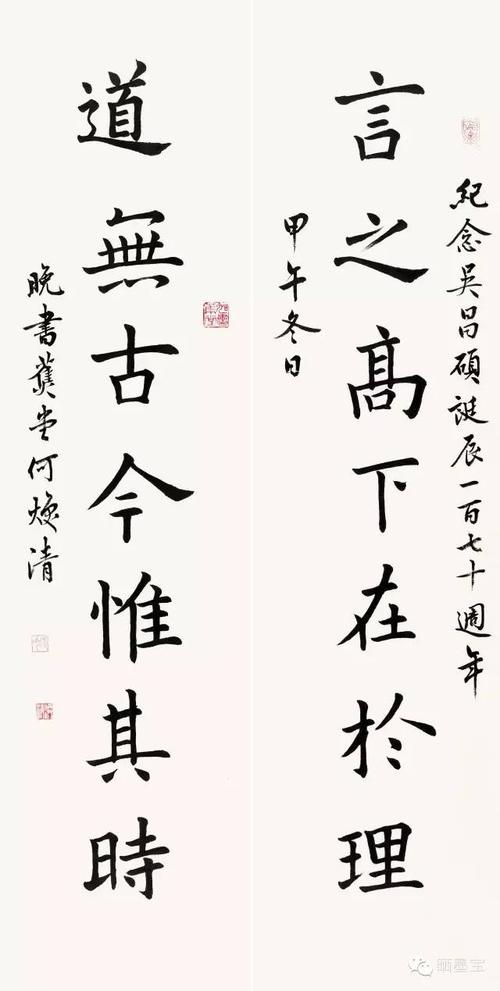 紀念吳昌碩誕辰一百七十週年
言之高下在於理
甲午冬日
道無古今惟其時
晚書蕉堂何煥清
晒墨宝